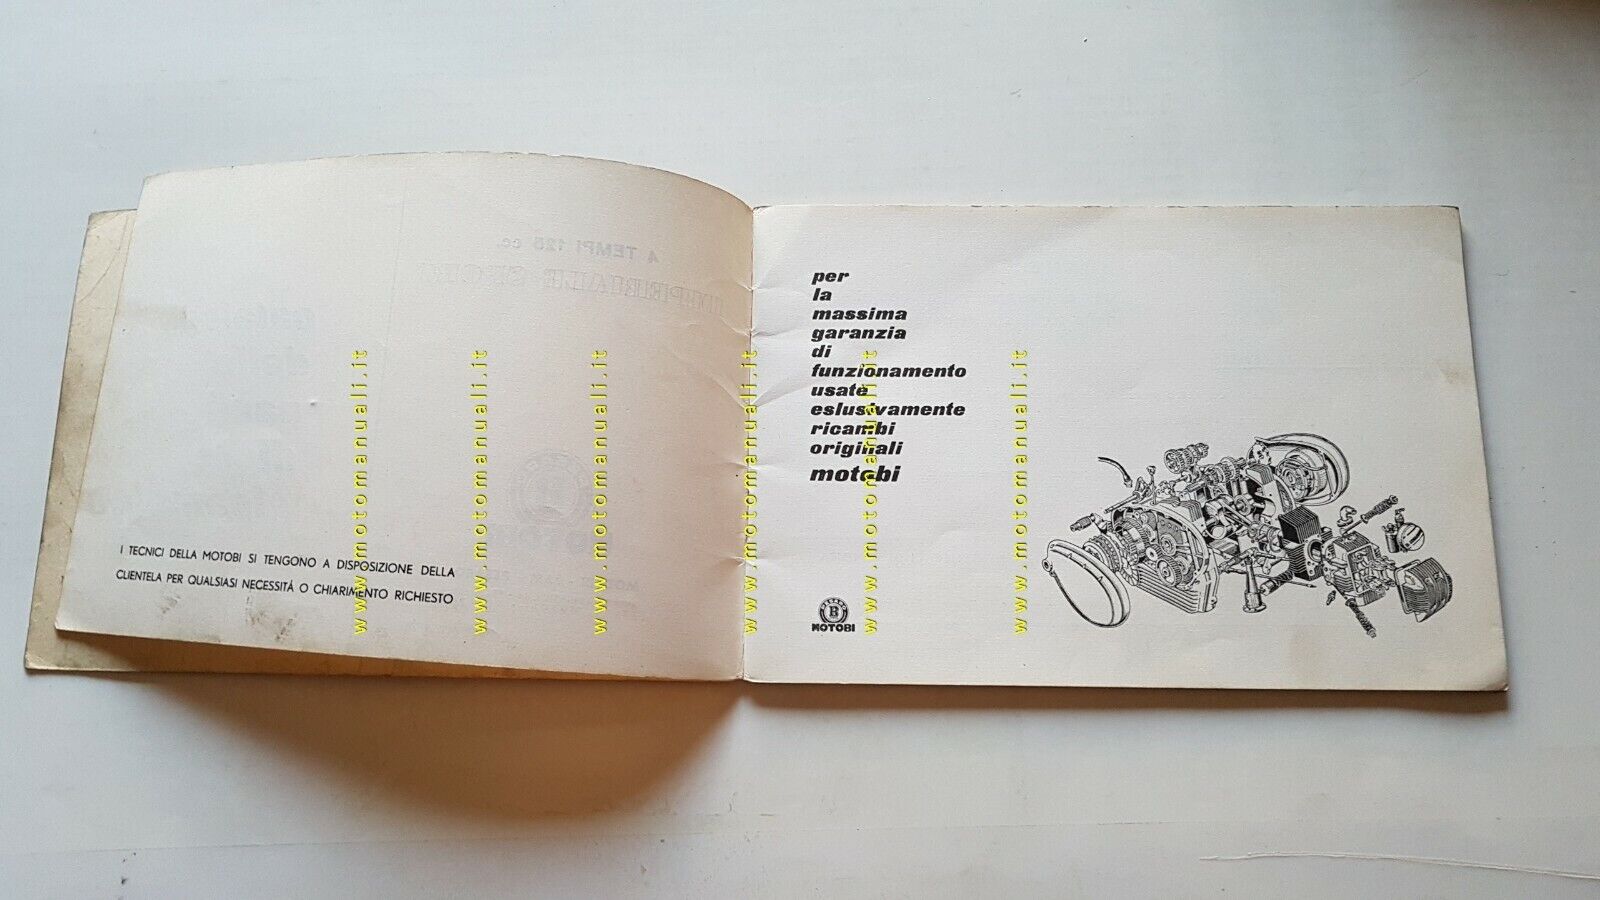 4 TEMPI 125 cc.
IMPERIALE SPORT
I TECNICI DELLA MOTOBI SI TENGONO A DISPOSIZIONE DELLA
CLIENTELA PER QUALSIASI NECESSITÁ O CHIARIMENTO RICHIESTO
per
la
massima
garanzia
di
funzionamento
usate
eslusivamente
ricambi
originali
motobi
B
MOTOBI
www.motomanuali.it
www.motomanuali.it
www.motomanuali.it
www.motomanuali.it
www.motomanuali.it
www.motomanuali.it